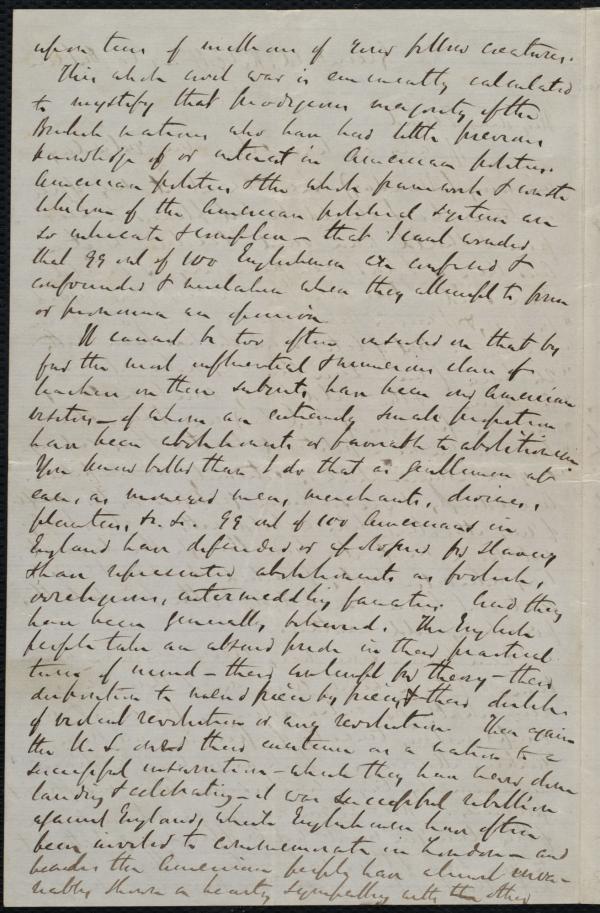 upon tens of millions of your fellow creatures.
This whole civil war is eminently calculated
to mystify that prodigious majority of the
British nations who have had little previous
knowledge of or interest in American politics.
American politics & the whole framework & consti-
tutions of the American political system are
so intricate & complex — that I cant wonder
that 99 out of 100 Englishmen are confused &
confounded & mistaken when they attempt to form
or pronounce an opinion
It cannot be too often insisted on that by
far the most influential & numerous class of
teachers on these subjects have been in American
visitors — of whom an extremely small proportion
have been abolitionists or favorable to abolitionism
You know better than I do that as gentlemen at
ease, as moneyed men, merchants, divines,
planters, &c. &c. 99 out of 100 Americans in
England have defended or apologised for slavery
& have represented abolitionists as foolish,
irreligious, intermeddling fanatics. And they
have been generally believed. The English
people take an absurd pride in their practical
turn of mind — their contempt for theory — their
disposition to mend piece by piece & their dislike
of violent revolution or any revolution. Then again
the U. S. owed their existence as a nation to a
successful insurrection — which they have never done
lauding & celebrating — it was successful rebellion
against England, which Englishmen have often
been invited to commemorate in London — and
besides the American people have almost inva-
riably shown a hearty sympathy with the other